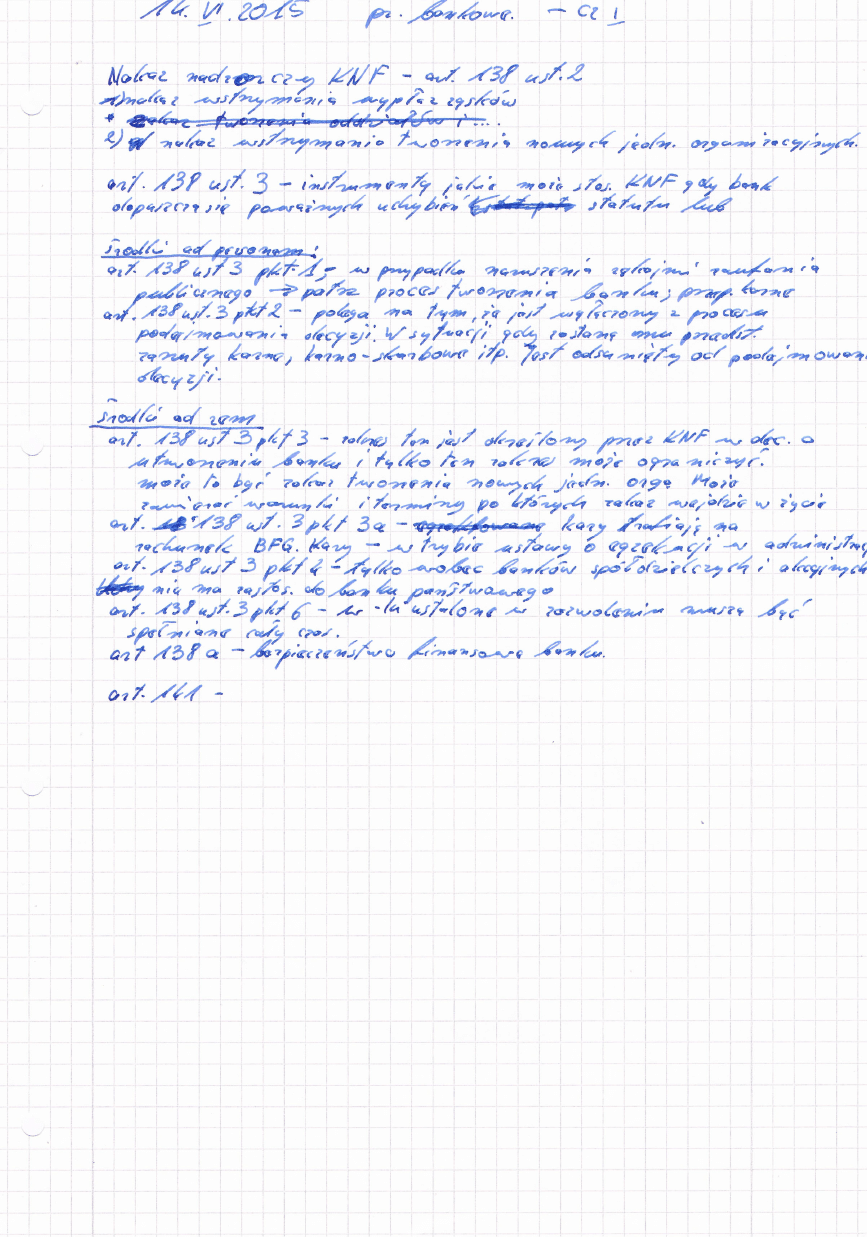 14. VI. 2015 pr. bankowe. - cz I
Nakaz nadzorczy KNF - art. 138 ust. 2
1) nakaz wstrzymania wypłaz zysków
* zakaz tworzenia oddziałów i ...
2) nakaz wstrzymania tworzenia nowych jedn. organizacyjnych.
art. 138 ust. 3 - instrumenty jakie może stos. KNF gdy bank
dopuszcza się poważnych uchybień statutu lub
środki ad personam:
art. 138 ust 3 pkt 1, - w przypadku naruszenia rękojmi zaufania
publicznego → patrz proces tworzenia banku, przep. karne
art. 138 ust. 3 pkt 2 - polega na tym, że jest wyłączony z procesu
podejmowania decyzji. W sytuacji gdy zostaną mu przedst.
zarzuty karne, karno-skarbowe itp. Jest odsunięty od podejmowan
decyzji.
środki ad rem
art. 138 ust 3 pkt 3 - zakres ten jest określony przez KNF w dec. o
utworzeniu banku i tylko ten zakres może ograniczyć.
może to być zakaz tworzenia nowych jedn. org. Może
zawierać warunki i terminy po których zakaz wejdzie w życie
art. 138 ust. 3 pkt 3a - egzekfowane kary trafiają na
rachunek BFG. Kary - w trybie ustawy o egzekucji w administrac
art. 138 ust 3 pkt 4 - tylko wobec banków spółdzielczych i akcyjnych
nie ma zastos. do banku państwowego
art. 138 ust. 3 pkt 6 - w-ki ustalone w zezwoleniu muszą być
spełniane cały czas.
art 138 a - bezpieczeństwo finansowe banku.
art. 141 -